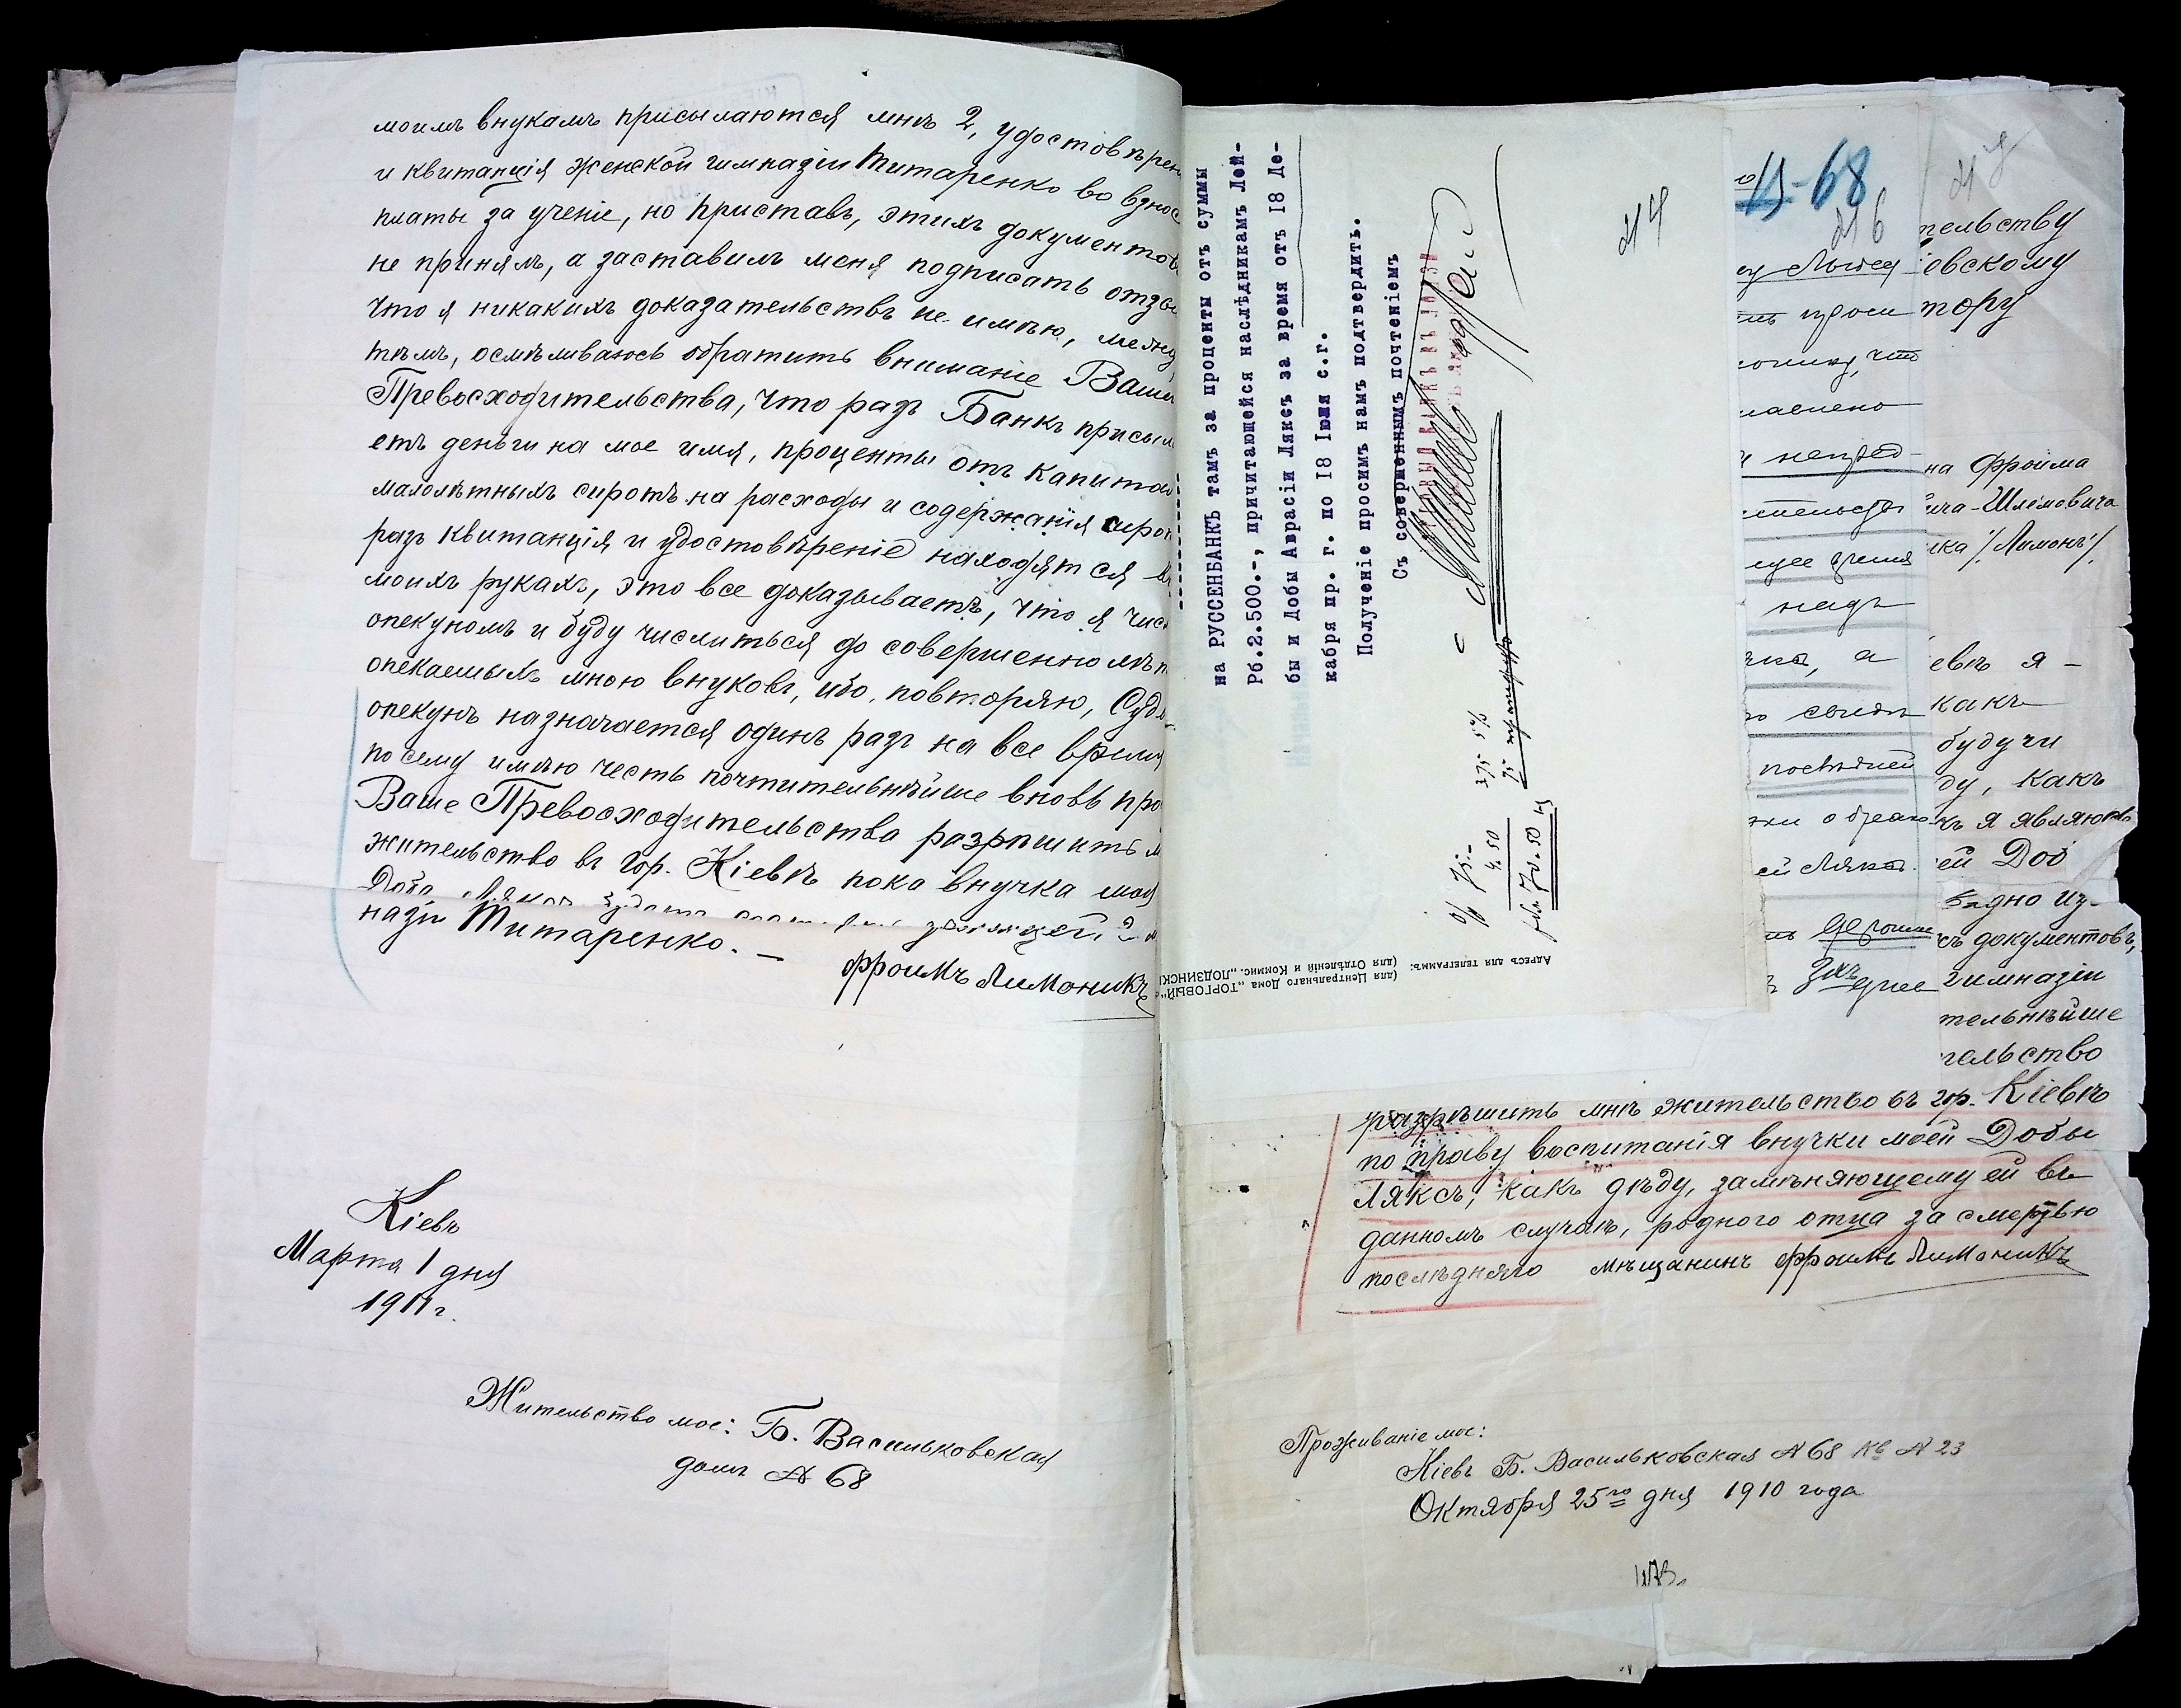 моимъ внукамъ присылаются мнѣ 2, удостовѣрен
и квитанція женской гимназіи Титаренко во взнос
платы за ученіе, но приставъ, этихъ документов
не принялъ, а заставилъ меня подписать отзы
что я никакихъ доказательствъ не имѣю, между
тѣмъ, осмѣливаюсь обратить вниманіе Ваше
Превосходительства, что разъ Банкъ присыла
етъ деньги на мое имя, проценты отъ капитал
малолѣтныхъ сиротъ на расходы и содержанія сирот
разъ квитанція и удостовѣреніе находятся въ
моихъ рукахъ, это все доказываетъ, что я чис
опекуномъ и буду числиться до совершеннолѣт
опекаемыхъ мною внуковъ, ибо, повторяю, Судо-
опекунъ назначается одинъ разъ на все время
по сему имѣю честь почтительнѣйше вновь про
Ваше Превосходительство разрѣшить м
жительство въ гор. Кіевѣ пока внучка моя
Доба Ляксъ
назіи Титаренко. —
Фроимъ Лимоникъ
Кіевъ
Марта 1 дня
1911 г.
Жительство мое: Б. Васильковская
домъ № 68
на РУССЕНБАНКЪ тамъ за проценты отъ суммы
Рб.2.500.-, причитающейся наслѣдникамъ Лей-
бы и Добы Авврасіи Ляксъ за время отъ 18 Де-
кабря пр. г. по 18 Іюня с.г.
Полученіе просимъ намъ подтвердить.
Съ совершеннымъ почтеніемъ
4.50
70.50
Адресъ для телеграммъ:
(для Центральнаго Дома „ТОРГОВЫЙ“
(для Отдѣленій и Коммис. „ЛОДЗИНСКІ
214
Д-68
216
непред-
надъ
а
послѣдней
тельству
евскому
тору
на Фроима
ича-Шлемовича
ика /Лимонъ/
евѣ я —
какъ
будучи
ду, какъ
къ я являюсь
ей Доб
видно из-
съ документовъ,
гимназіи
тельнѣйше
тельство
разрѣшить мнѣ жительство въ гор. Кіевѣ
по праву воспитанія внучки моей Добы
Ляксъ, какъ дѣду, замѣняющему ей въ
данномъ случаѣ, родного отца за смертью
послѣдняго мѣщанинъ Фроимъ Лимоникъ
Проживаніе мое:
Кіевъ Б. Васильковская № 68 кв № 23
Октября 25го дня 1910 года